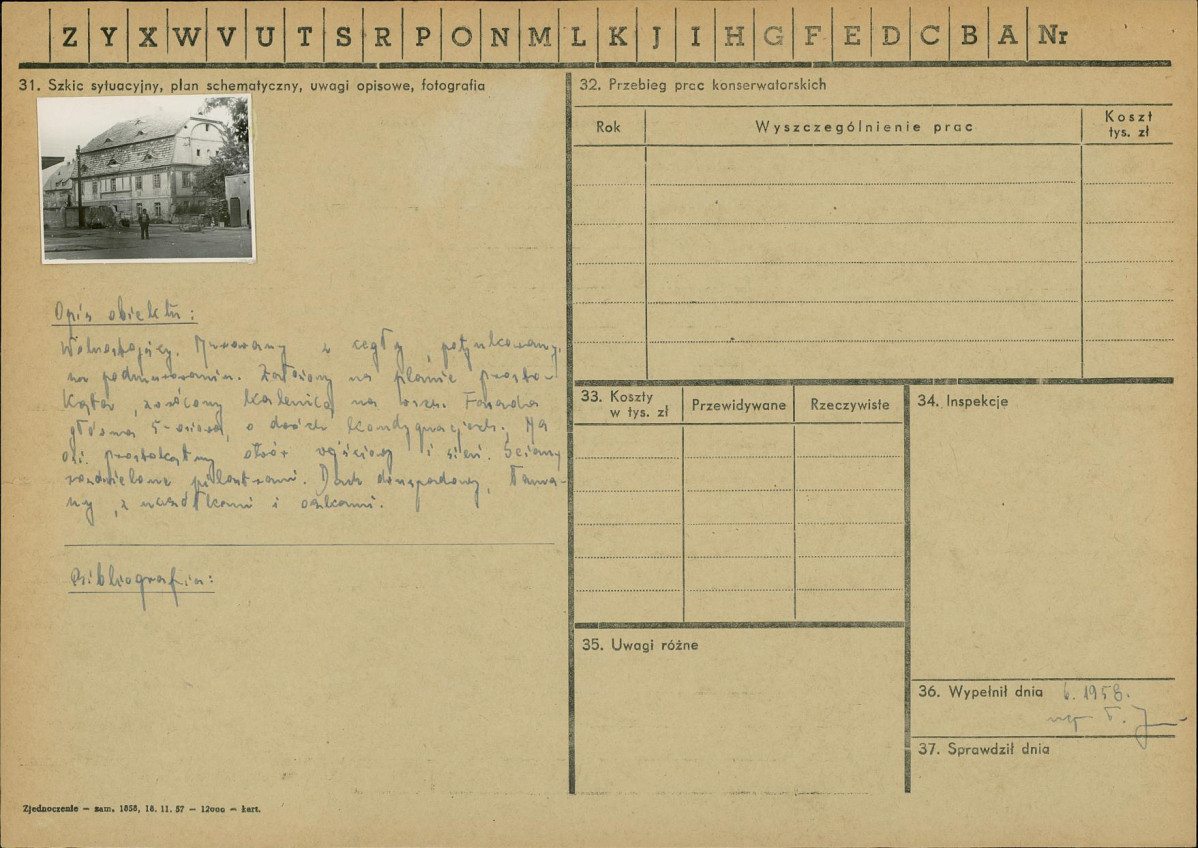 Z Y X W V U T S R P O N M L K J I H G F E D C B A Nr
31. Szkic sytuacyjny, plan schematyczny, uwagi opisowe, fotografia
Opis obiektu:
Wolnostojący. Murowany z cegły, potynkowany,
na podmurowaniu. Założony na planie prosto-
kąta, zwrócony kalenicą na Fasada
główna 5-osiowa, o dwóch kondygnacjach. Na
osi prostokątny otwór wejściowy i sień. Ściany
rozdzielone pilastrami. Dach dwuspadowy, łama-
ny, z naczółkami i
Bibliografia:
Zjednoczenie – zam. 1858, 18. 11. 57 – 12000 – kart.
32. Przebieg prac konserwatorskich
Rok Wyszczególnienie prac Koszt tys. zł
33. Koszty w tys. zł Przewidywane Rzeczywiste
34. Inspekcje
35. Uwagi różne
36. Wypełnił dnia 6. 1958.
mgr
37. Sprawdził dnia